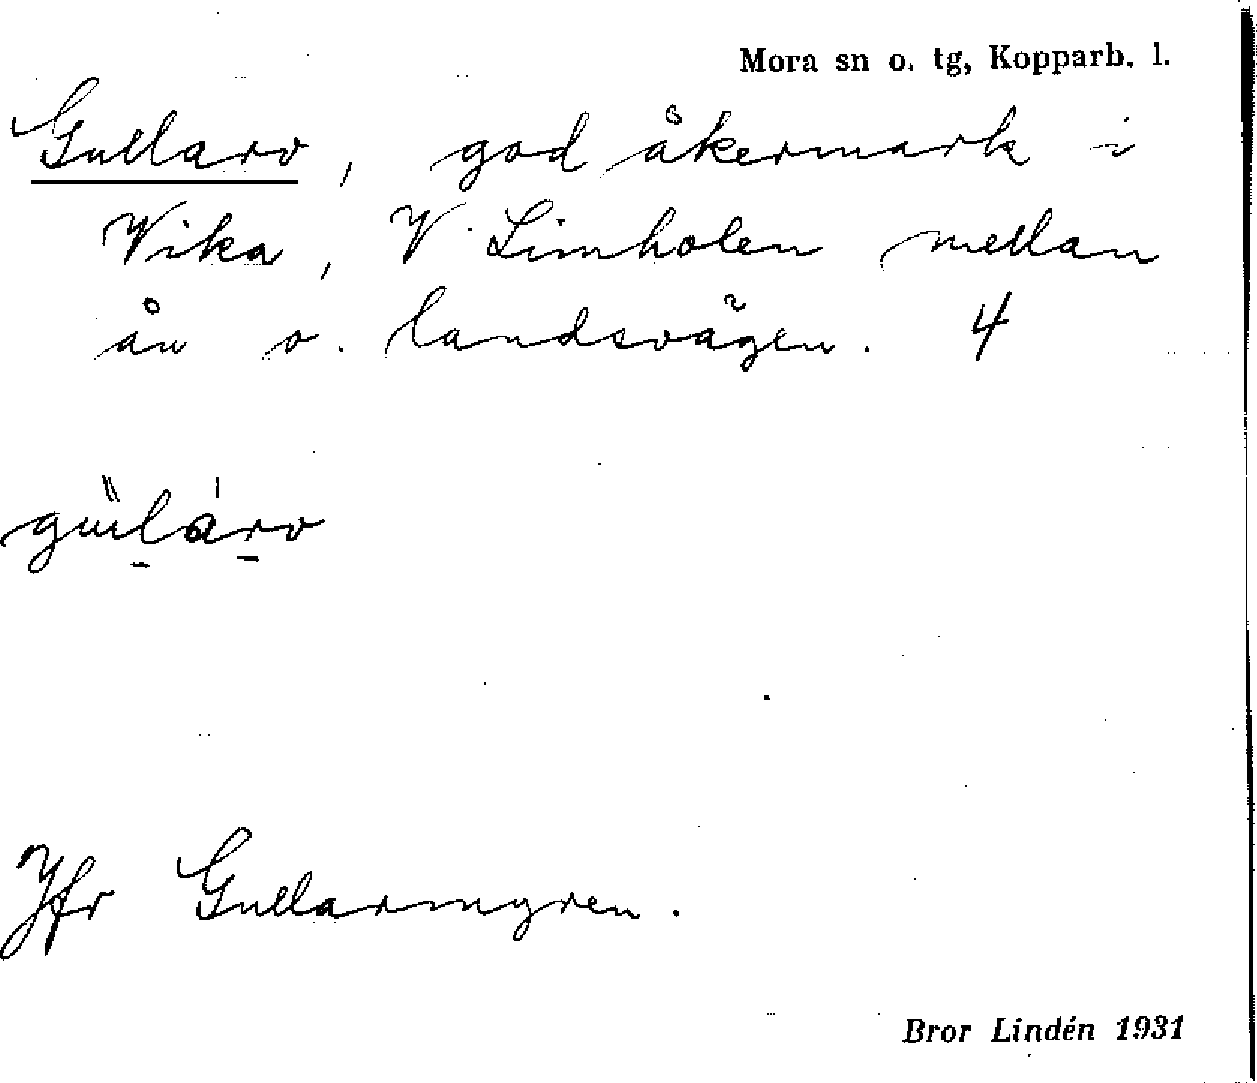 Mora sn o. tg, Kopparb. l.
Gullarv, god åkermark i
Vika, V. Limholen mellan
ån o. landsvägen. 4
gu̎l̠a̍r̠v
Jfr Gullarmyren.
Bror Lindén 1931